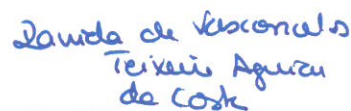 Danida de Vasconcelos
Teixeira Aguiar
da Costa